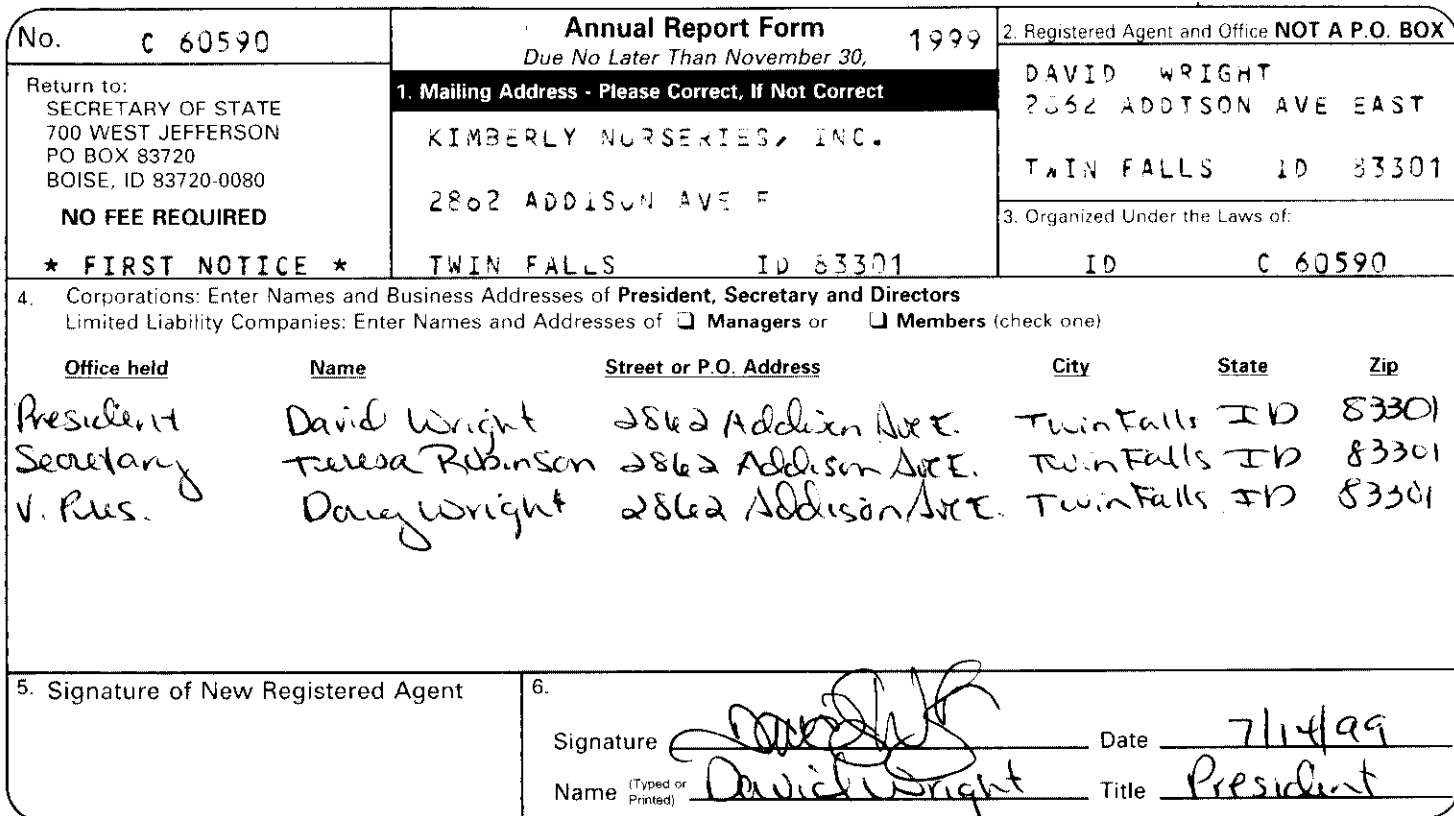 No. C 60590
Annual Report Form 1999
Due No Later Than November 30,
Return to:
SECRETARY OF STATE
700 WEST JEFFERSON
PO BOX 83720
BOISE, ID 83720-0080
NO FEE REQUIRED
* FIRST NOTICE *
1. Mailing Address - Please Correct, If Not Correct
KIMBERLY NURSERIES, INC.
2862 ADDISON AVE E
TWIN FALLS ID 83301
2. Registered Agent and Office NOT A P.O. BOX
DAVID WRIGHT
2862 ADDISON AVE EAST
TWIN FALLS ID 83301
3. Organized Under the Laws of:
ID C 60590
4. Corporations: Enter Names and Business Addresses of President, Secretary and Directors
Limited Liability Companies: Enter Names and Addresses of ❑ Managers or ❑ Members (check one)
Office held Name Street or P.O. Address City State Zip
President David Wright 2862 Addison Ave E. Twin Falls ID 83301
Secretary Teresa Robinson 2862 Addison Ave E. Twin Falls ID 83301
V. Pres. Doug Wright 2862 Addison Ave E. Twin Falls ID 83301
5. Signature of New Registered Agent
6.
Signature Date 7/14/99
Name (Typed or Printed) David Wright Title President